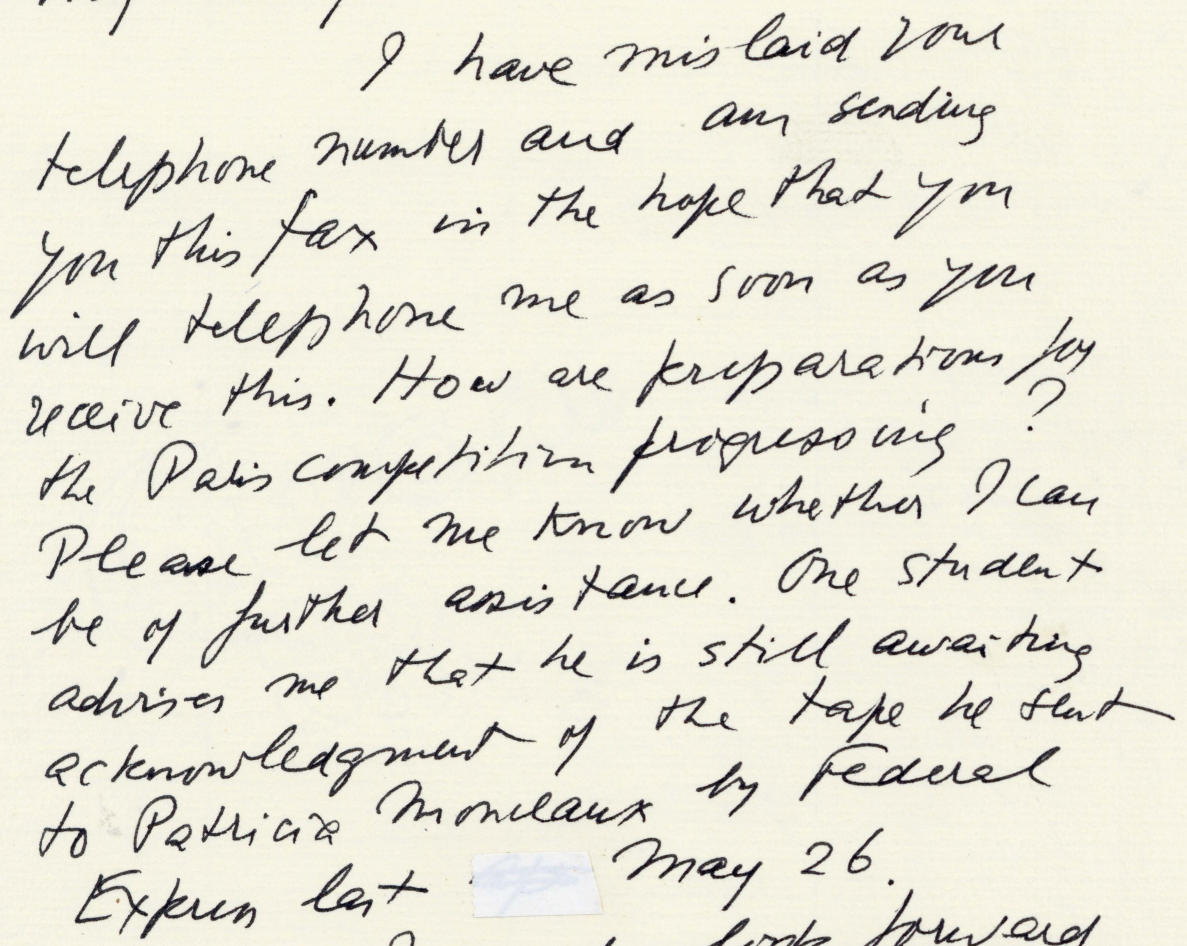 I have mislaid your
telephone number and am sending
you this fax in the hope that you
will telephone me as soon as you
receive this. How are preparations for
the Paris competition progressing?
Please let me know whether I can
be of further assistance. One student
advises me that he is still awaiting
acknowledgment of the tape he sent
to Patricia Monceaux by Federal
Express last May 26.
look forward